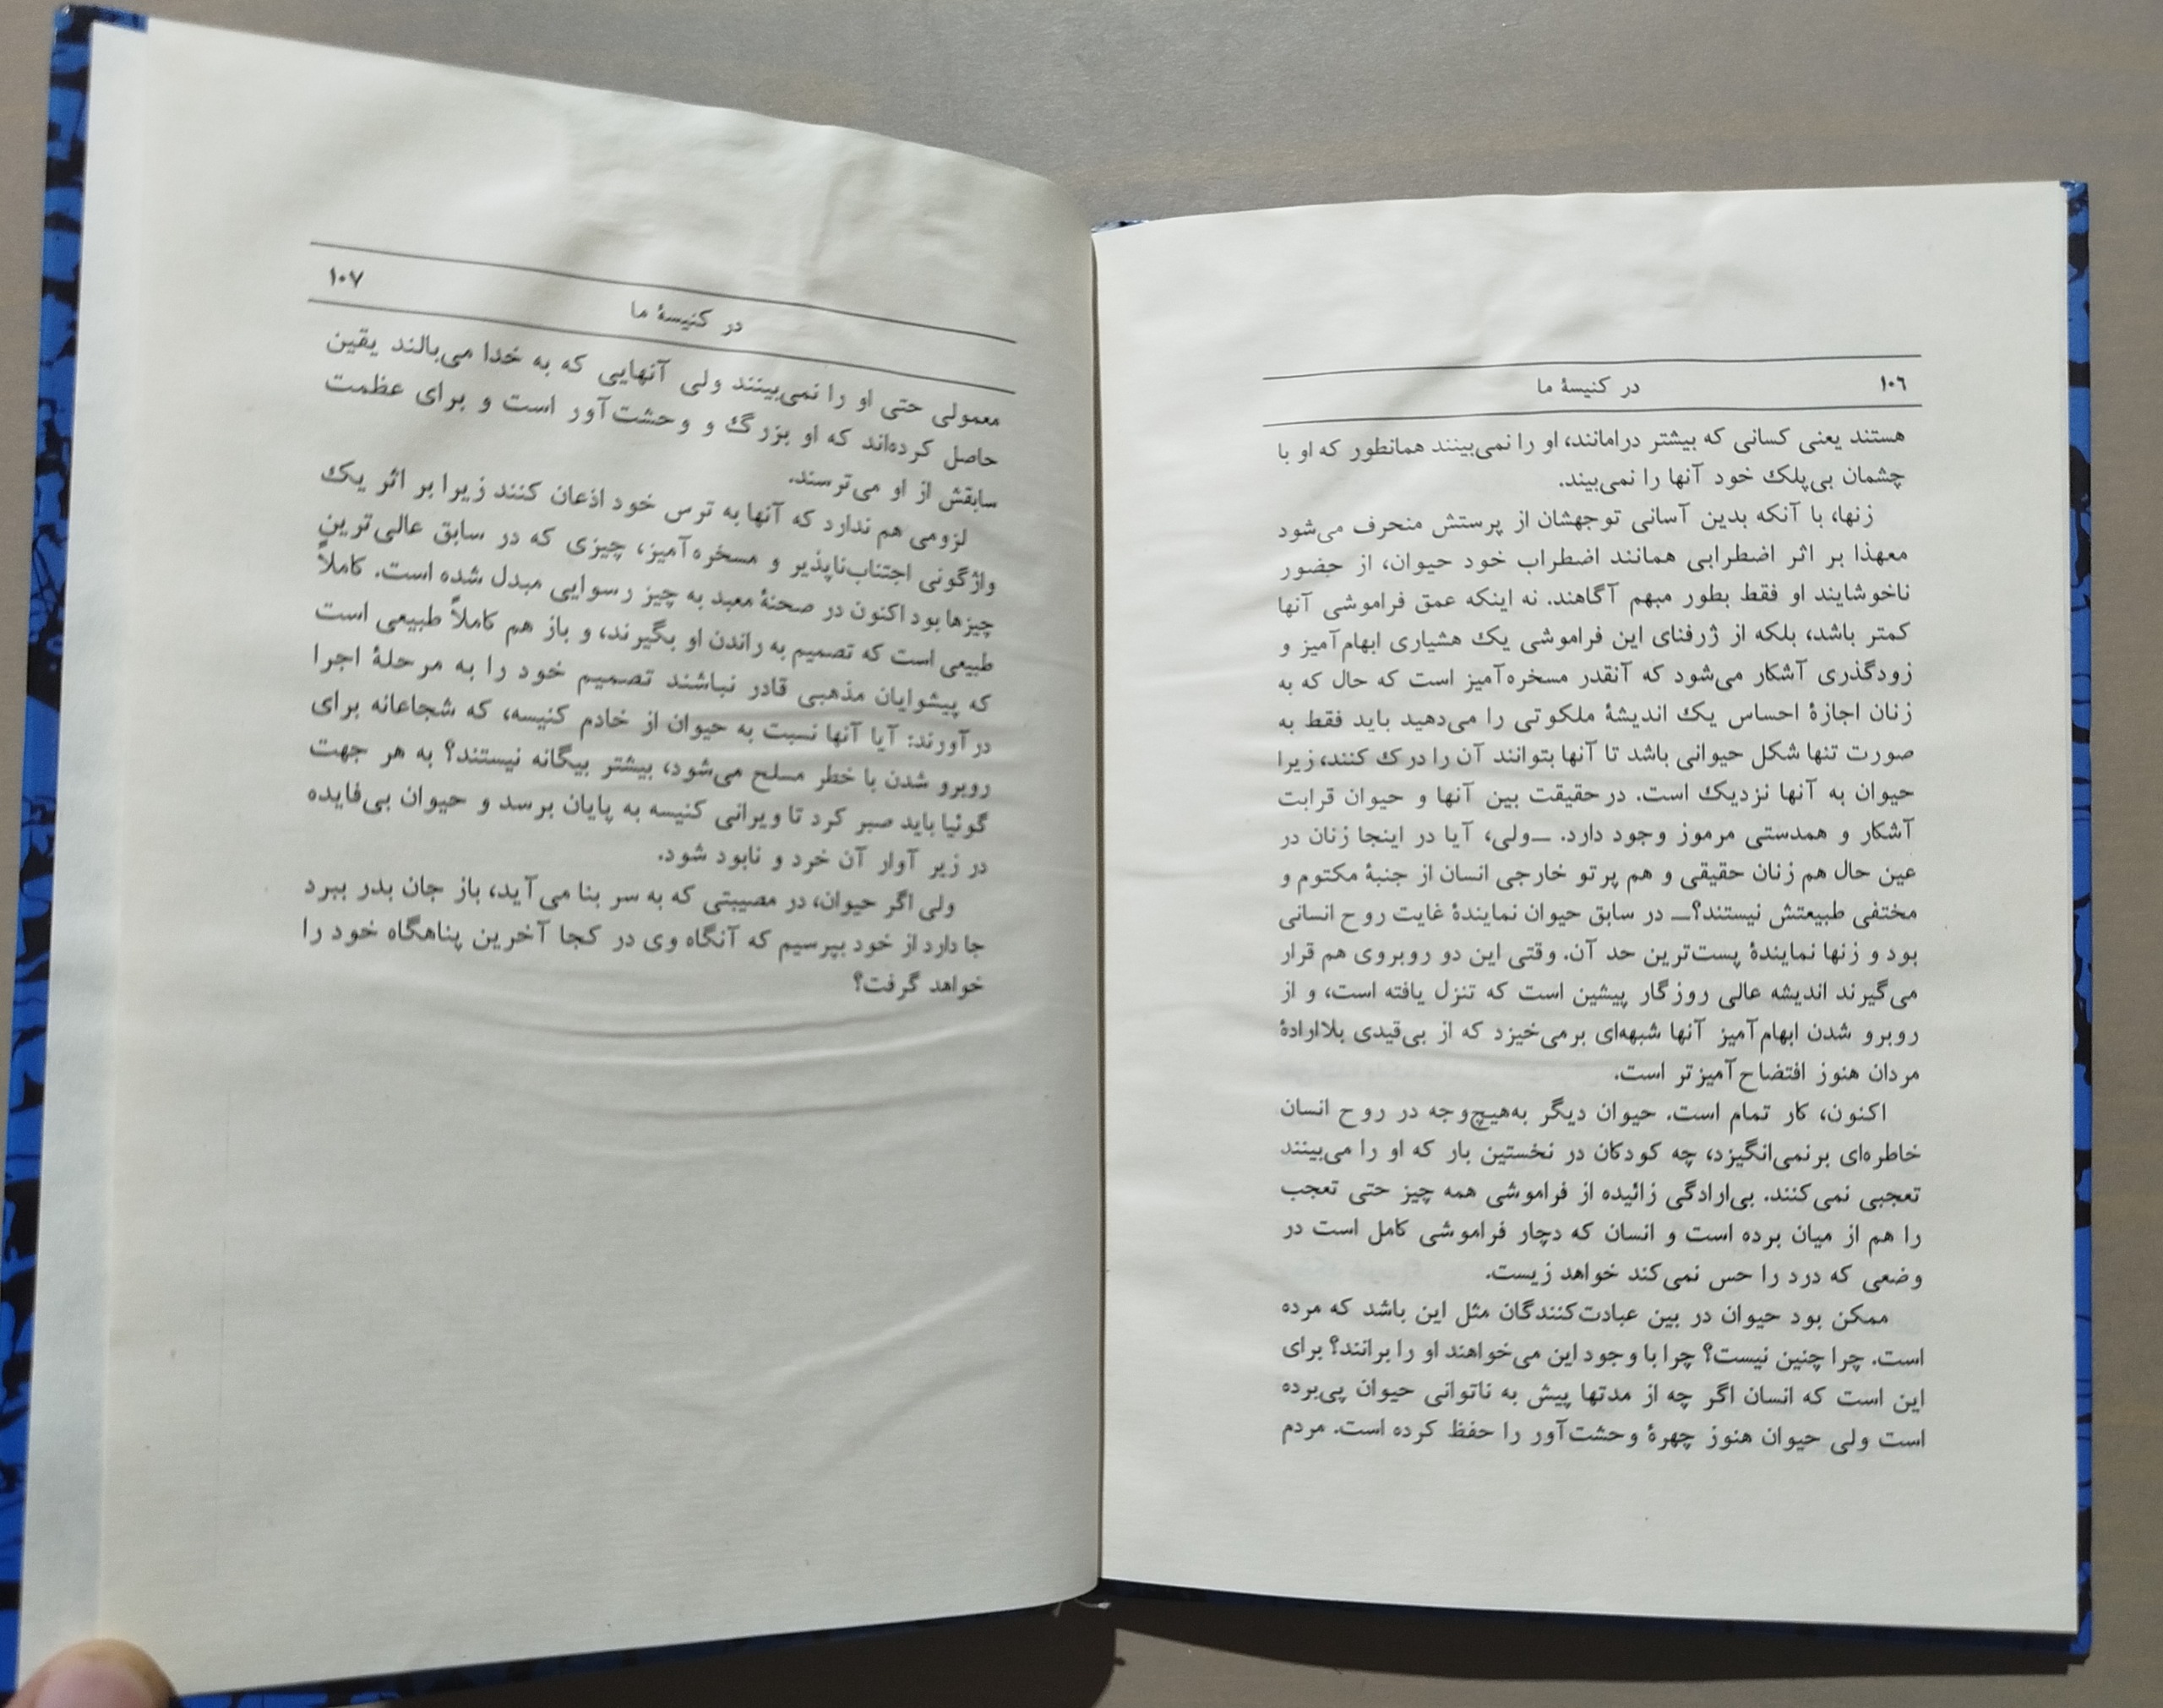 ۱۰۶
در کنیسهٔ ما
هستند یعنی کسانی که بیشتر درامانند، او را نمی‌بینند همانطور که او با
چشمان بی‌پلک خود آنها را نمی‌بیند.
زنها، با آنکه بدین آسانی توجهشان از پرستش منحرف می‌شود
معهذا بر اثر اضطرابی همانند اضطراب خود حیوان، از حضور
ناخوشایند او فقط بطور مبهم آگاهند. نه اینکه عمق فراموشی آنها
کمتر باشد، بلکه از ژرفنای این فراموشی یک هشیاری ابهام‌آمیز و
زودگذری آشکار می‌شود که آنقدر مسخره‌آمیز است که حال که به
زنان اجازهٔ احساس یک اندیشهٔ ملکوتی را می‌دهید باید فقط به
صورت تنها شکل حیوانی باشد تا آنها بتوانند آن را درک کنند، زیرا
حیوان به آنها نزدیک است. در حقیقت بین آنها و حیوان قرابت
آشکار و همدستی مرموز وجود دارد. ــ ولی، آیا در اینجا زنان در
عین حال هم زنان حقیقی و هم پرتو خارجی انسان از جنبهٔ مکتوم و
مختفی طبیعتش نیستند؟ــ در سابق حیوان نمایندهٔ غایت روح انسانی
بود و زنها نمایندهٔ پست‌ترین حد آن. وقتی این دو روبروی هم قرار
می‌گیرند اندیشه عالی روزگار پیشین است که تنزل یافته است، و از
روبرو شدن ابهام‌آمیز آنها شبهه‌ای برمی‌خیزد که از بی‌قیدی بلاارادهٔ
مردان هنوز افتضاح‌آمیزتر است.
اکنون، کار تمام است. حیوان دیگر به‌هیچ‌وجه در روح انسان
خاطره‌ای برنمی‌انگیزد، چه کودکان در نخستین بار که او را می‌بینند
تعجبی نمی‌کنند. بی‌ارادگی زائیده از فراموشی همه چیز حتی تعجب
را هم از میان برده است و انسان که دچار فراموشی کامل است در
وضعی که درد را حس نمی‌کند خواهد زیست.
ممکن بود حیوان در بین عبادت‌کنندگان مثل این باشد که مرده
است. چرا چنین نیست؟ چرا با وجود این می‌خواهند او را برانند؟ برای
این است که انسان اگر چه از مدتها پیش به ناتوانی حیوان پی‌برده
است ولی حیوان هنوز چهرهٔ وحشت‌آور را حفظ کرده است. مردم
در کنیسهٔ ما
۱۰۷
معمولی حتی او را نمی‌بینند ولی آنهایی که به خدا می‌بالند یقین
حاصل کرده‌اند که او بزرگ و وحشت‌آور است و برای عظمت
سابقش از او می‌ترسند.
لزومی هم ندارد که آنها به ترس خود اذعان کنند زیرا بر اثر یک
واژگونی اجتناب‌ناپذیر و مسخره‌آمیز، چیزی که در سابق عالی‌ترین
چیزها بود اکنون در صحنهٔ معبد به چیز رسوایی مبدل شده است. کاملاً
طبیعی است که تصمیم به راندن او بگیرند، و باز هم کاملاً طبیعی است
که پیشوایان مذهبی قادر نباشند تصمیم خود را به مرحلهٔ اجرا
درآورند: آیا آنها نسبت به حیوان از خادم کنیسه، که شجاعانه برای
روبرو شدن با خطر مسلح می‌شود، بیشتر بیگانه نیستند؟ به هر جهت
گوئیا باید صبر کرد تا ویرانی کنیسه به پایان برسد و حیوان بی‌فایده
در زیر آوار آن خرد و نابود شود.
ولی اگر حیوان، در مصیبتی که به سر بنا می‌آید، باز جان بدر ببرد
جا دارد از خود بپرسیم که آنگاه وی در کجا آخرین پناهگاه خود را
خواهد گرفت؟